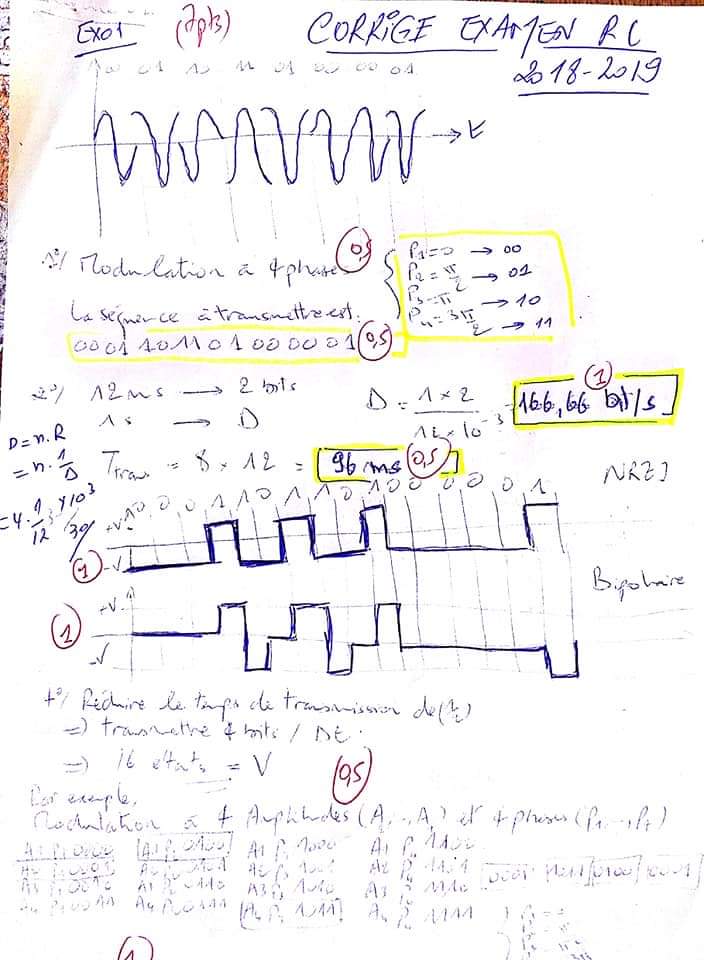 EXO1 (7pts) CORRIGE EXAMEN RC
2018-2019
00 01 10 11 01 00 00 01
t
1°/ Modulation à 4 phases 0,5
P1=0 → 00
P2=π/2 → 01
P3=π → 10
P4=3π/2 → 11
La séquence à transmettre est:
00 01 10 11 01 00 00 01 0,5
2°/ 12ms → 2 bits
1s → D
D = 1×2 / 12×10⁻³ 166,66 bit/s 1
D=n.R
=n.1/Δ
=4.1/12 ×10³
Ttrans = 8 × 12 = 96 ms 0,5
NRZ
0 0 0 1 1 0 1 1 0 1 0 0 0 0 0 1
+V
-V
1
Bipolaire
+V
-V
1
4°/ Réduire le temps de transmission de
⇒ transmettre 4 bits / Δt
⇒ 16 états = V
0,5
Par exemple,
Modulation à 4 Amplitudes (A1...A4) et 4 phases (P1...P4)
0000 0100 1000 1100
0001 0101 1001 1101
0010 0110 1010 1110
0011 0111 1011 1111
0001 1011 0100 0001
1